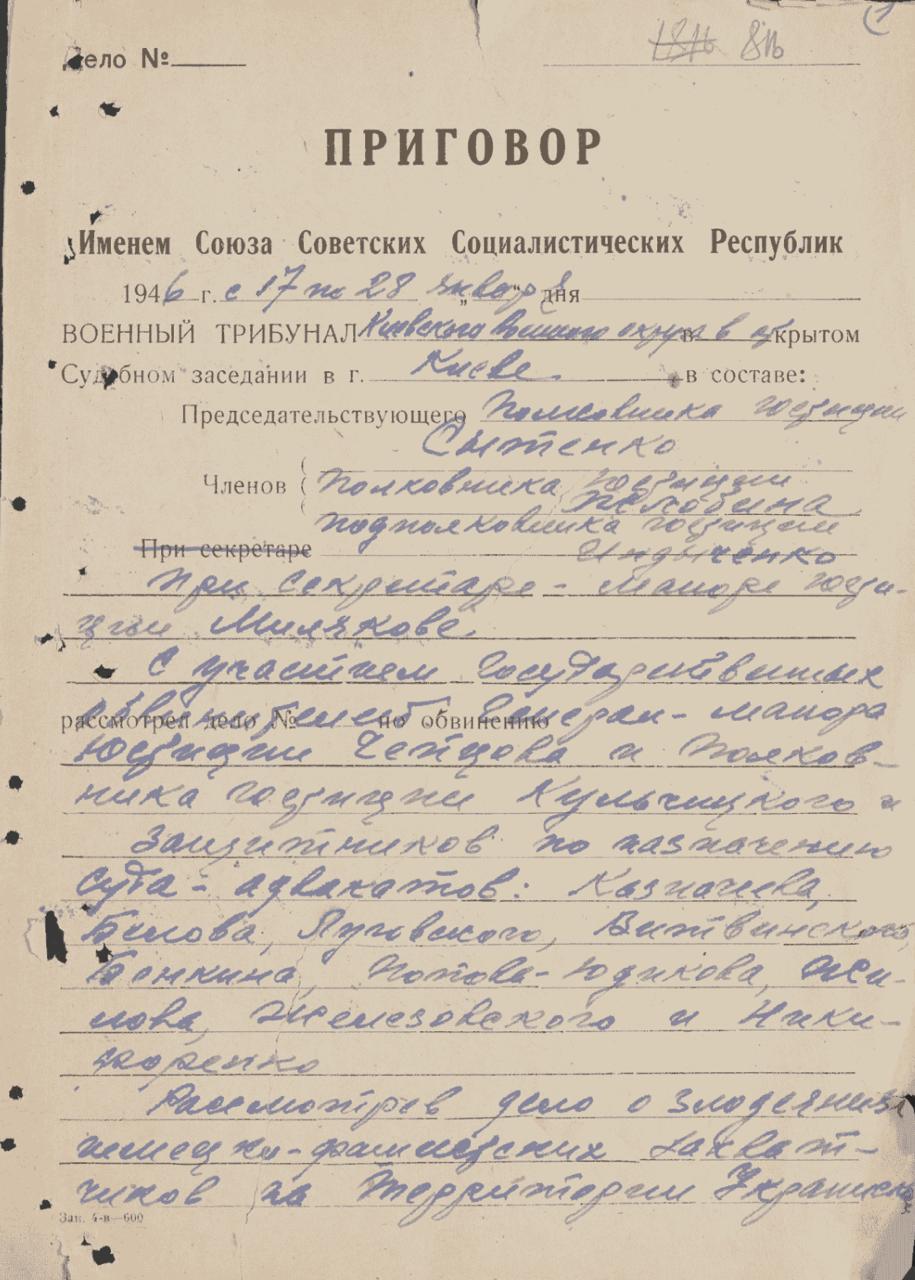 Дело №
18/16 8/16
ПРИГОВОР
Именем Союза Советских Социалистических Республик
1946 г. с 17 по 28 января дня
ВОЕННЫЙ ТРИБУНАЛ Киевского Военного округа в открытом
Судебном заседании в г. Киеве в составе:
Председательствующего Полковника юстиции
Сытенко
Членов Полковника юстиции
Желобина
подполковника юстиции
При секретаре Индыченко
При секретаре - майоре юсти-
ции Милякове
С участием государственных
рассмотрел дело № по обвинению
обвинителей Генерал-майора
Юстиции Чепцова и Полков-
ника юстиции Кульчицкого и
Защитников по назначению
суда - адвокатов: Казначеева,
Белова, Луговского, Витвинского,
Бенкина, Попова-Юдикова,
лова, Железовского и Ники-
форенко
Рассмотрев дело о злодеяниях
немецко-фашистских захват-
чиков на территории Украинской
Зак. 4-в—600